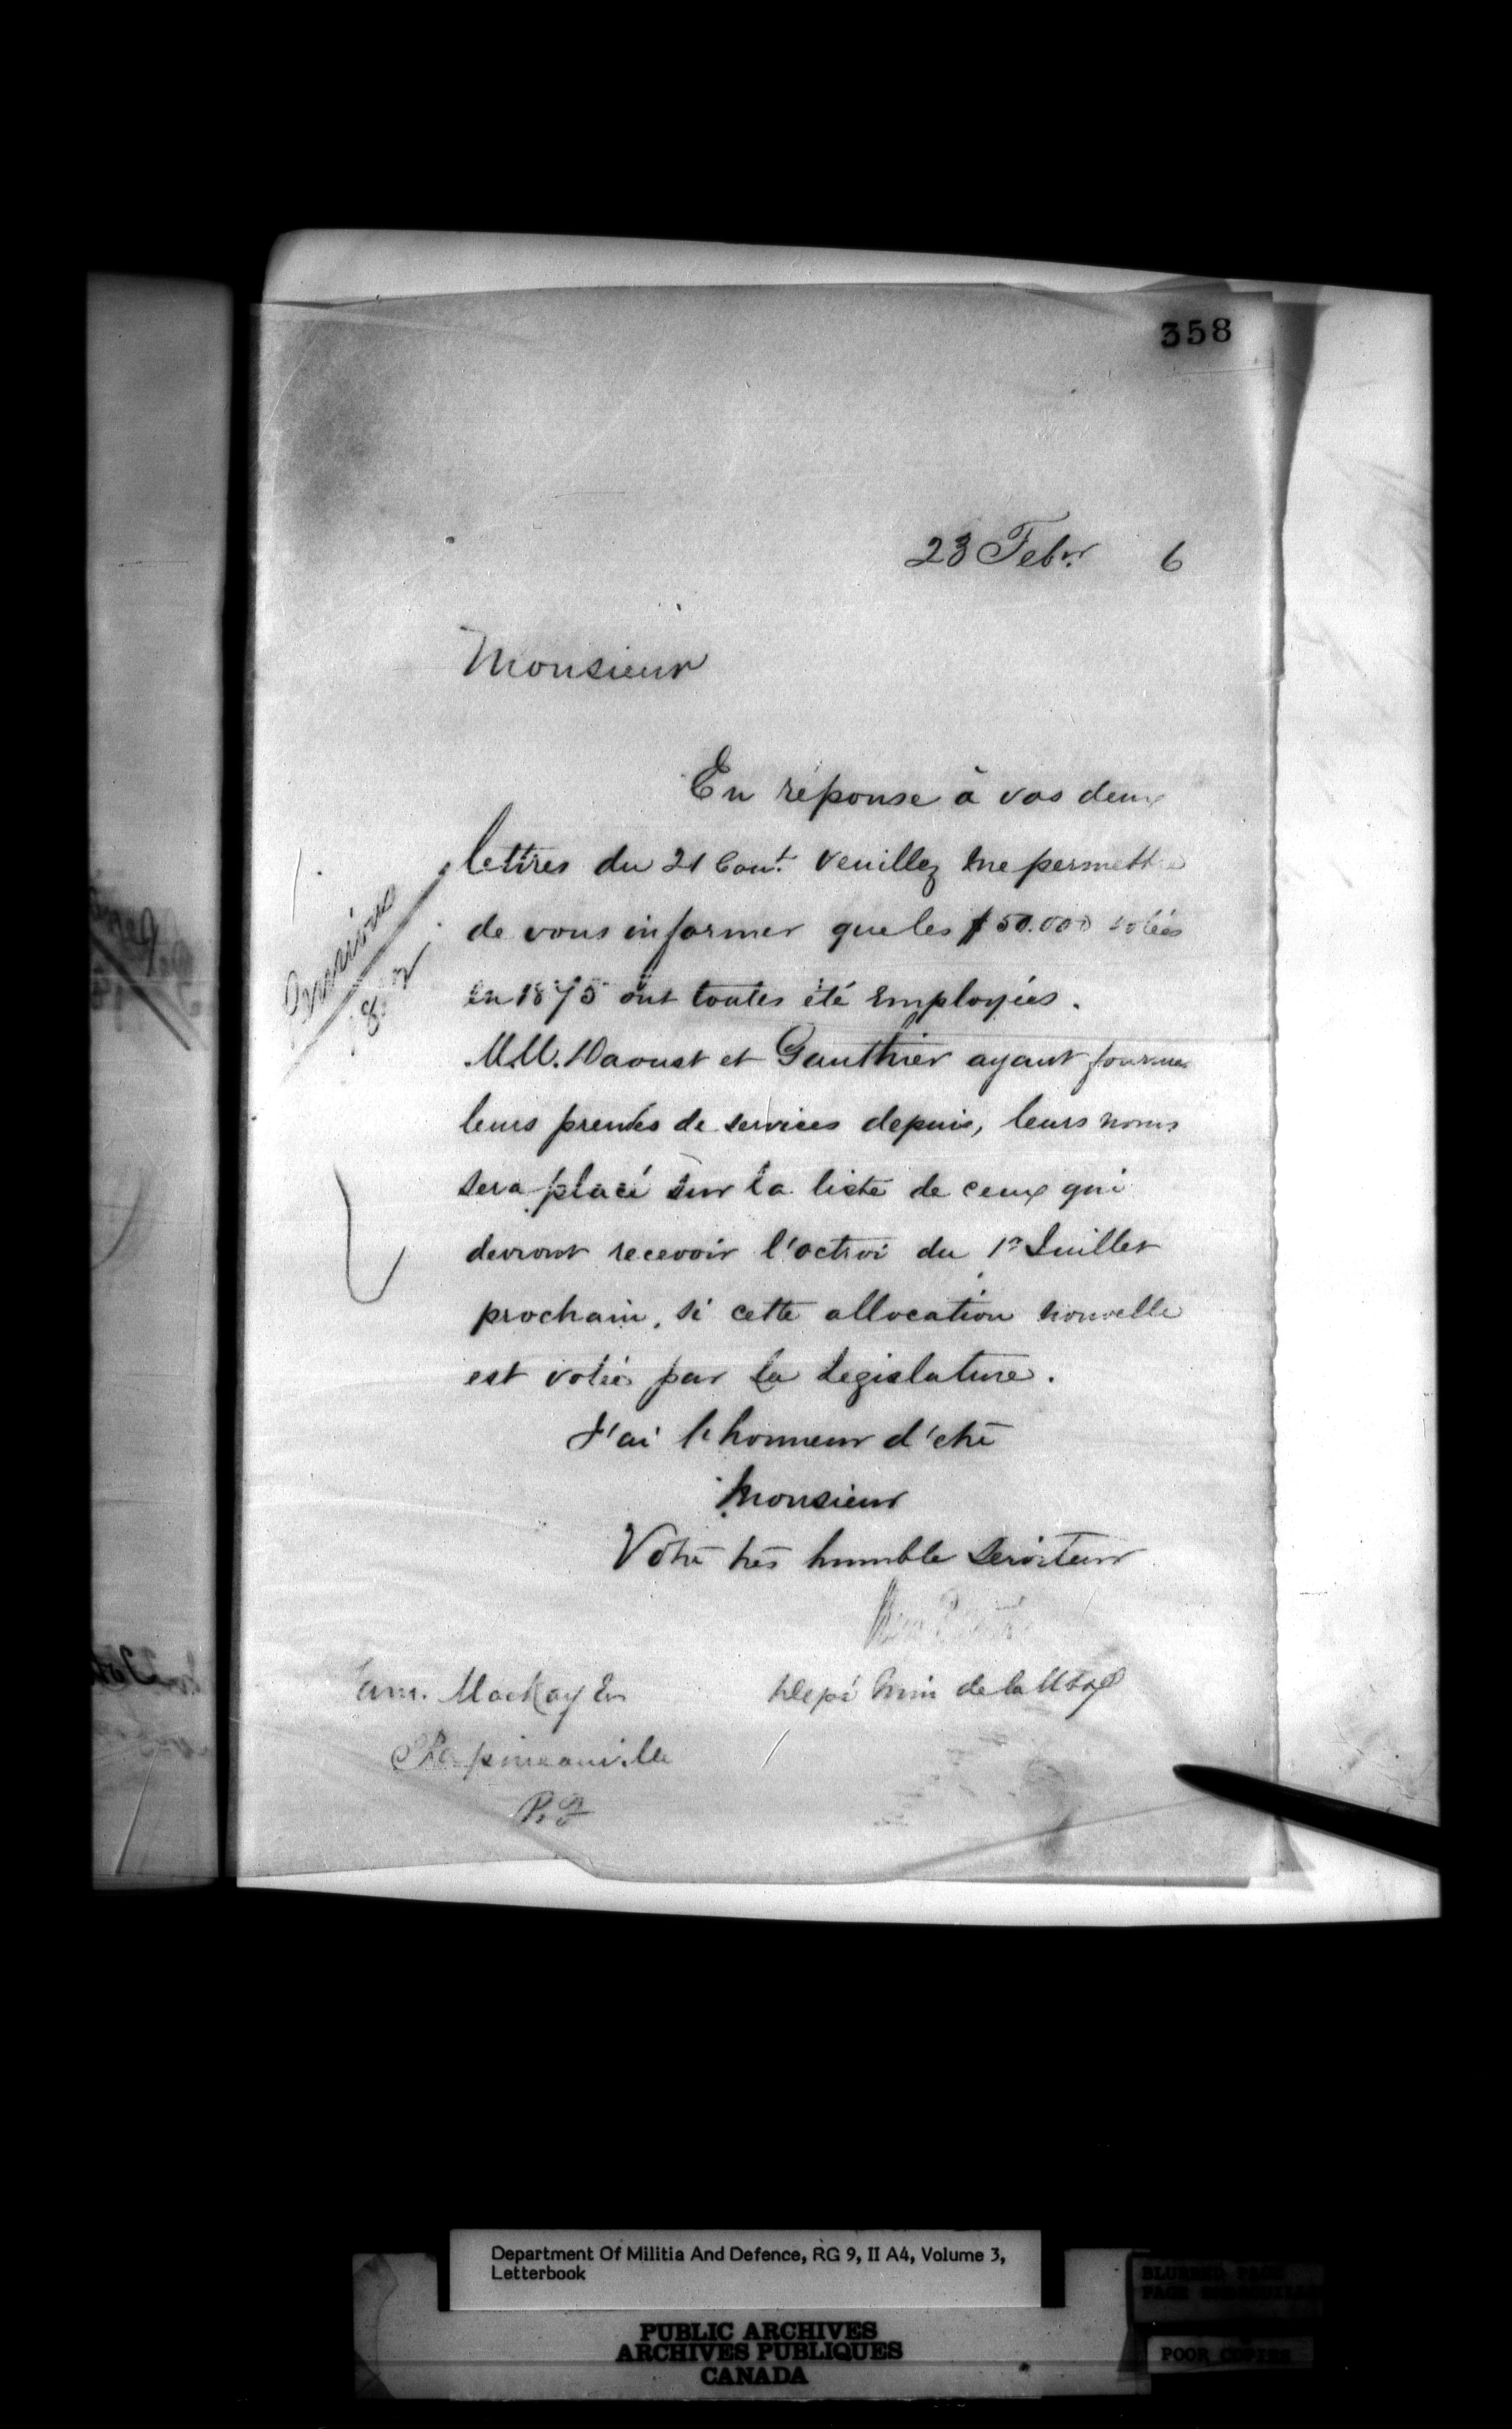 358
23 Febr. 6
Monsieur
En réponse à vos deux
lettres du 21 Cout. veuillez me permettre
de vous informer que les $50.000 votées
en 1875 ont toutes été employées.
M.M. Daoust et Gauthier ayant fournie
leurs preuves de services depuis, leurs noms
sera placé sur la liste de ceux qui
devront recevoir l'octroi du 1er Juillet
prochain, si cette allocation nouvelle
est votée par la legislature.
J'ai l'honneur d'etre
Monsieur
Votre très humble Serviteur
Pensions
1812
Wm. MacKay Er
Depé Min de la
Papineauville
P. Q
Department Of Militia And Defence, RG 9, II A4, Volume 3,
Letterbook
PUBLIC ARCHIVES
ARCHIVES PUBLIQUES
CANADA
BLURRED PAGE
POOR COPIES